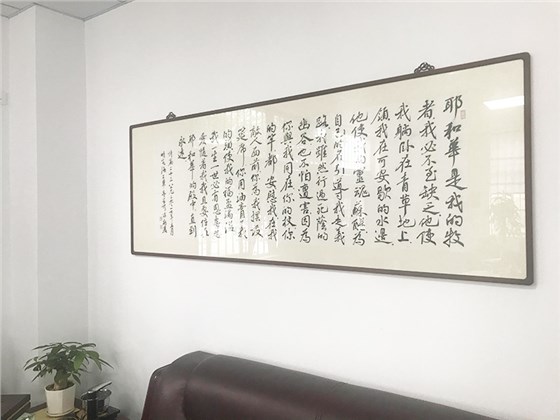 耶和華是我的牧
者我必不至缺乏他使
我躺卧在青草地上
領我在可安歇的水邊
他使我的靈魂蘇醒為
自己的名引導我走義
路我雖然行過死蔭的
幽谷也不怕遭害因為
你與我同在你的杖你
的竿都安慰我在我
敵人面前你為我擺設
筵席你用油膏了我
的頭使我的福杯滿溢
我一生一世必有恩惠慈
愛隨着我我且要住在
耶和華的殿中直到
永遠